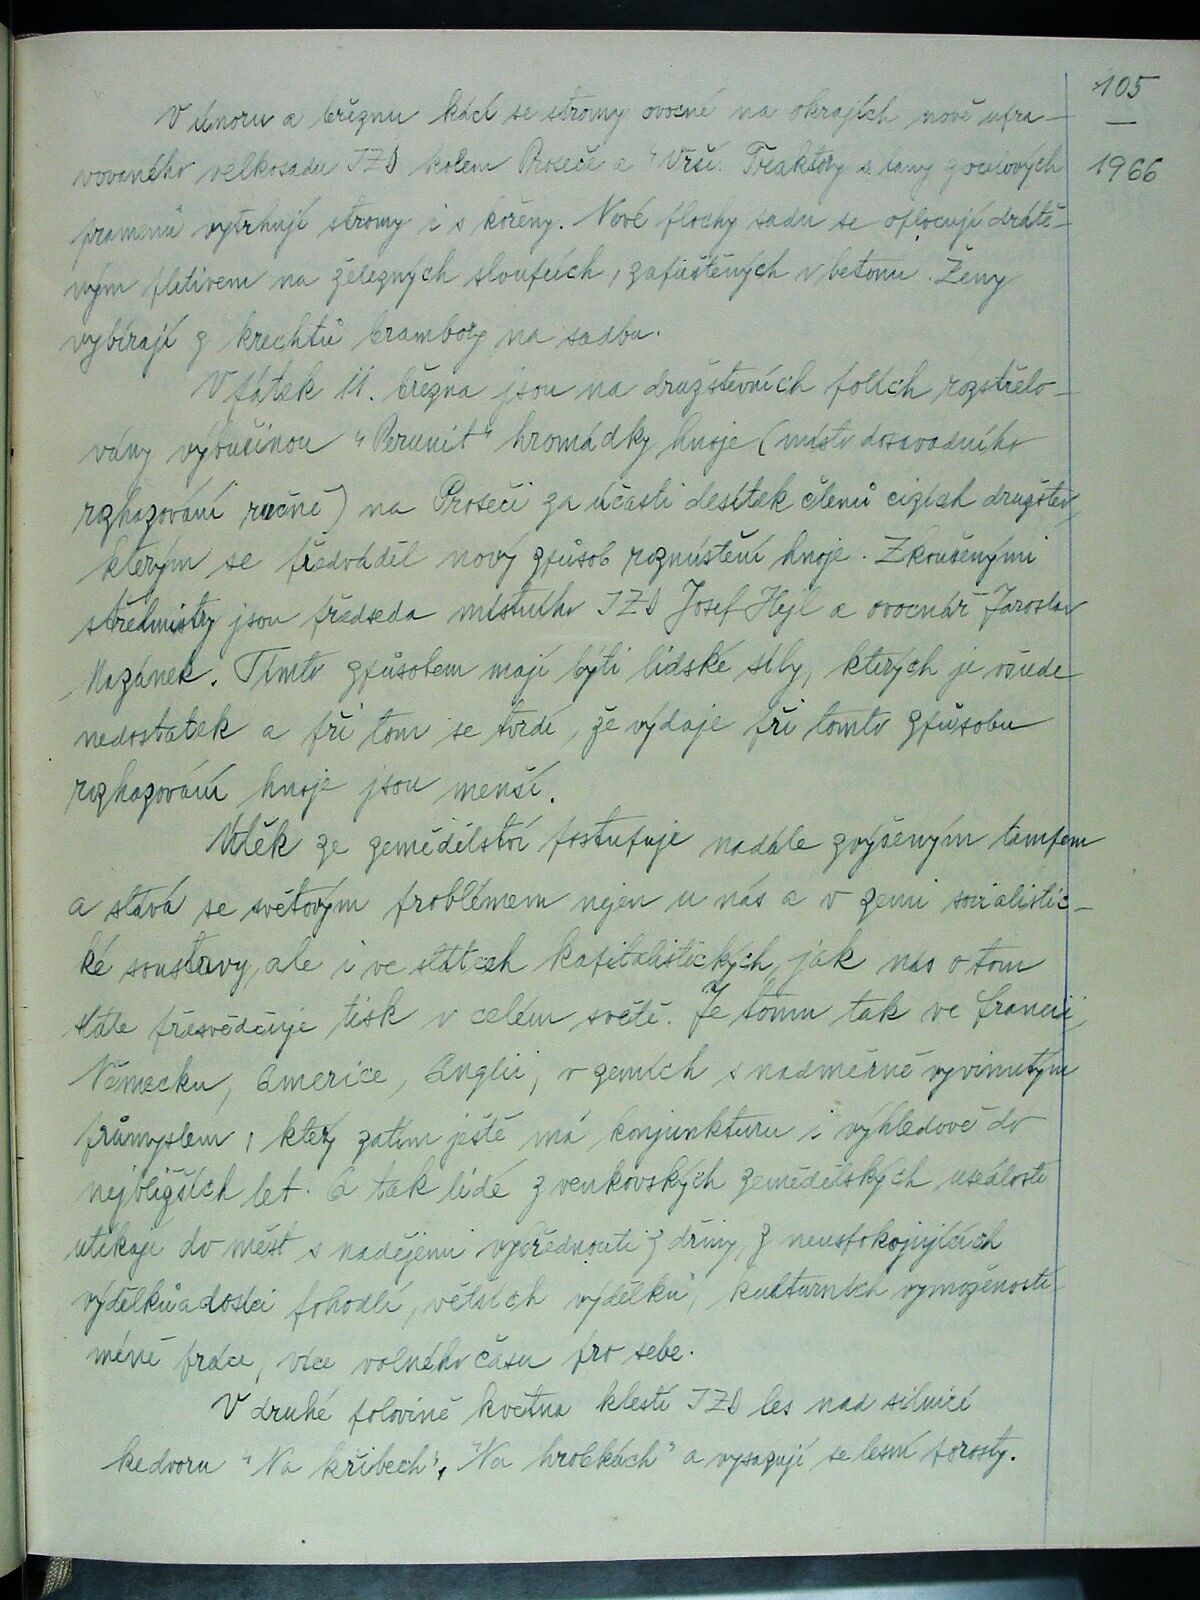 105
1966
V únoru a březnu kácí se stromy ovocné na okrajích nově upra-
vovaného velkosadu JZD kolem Proseče a "Vrší. Traktory s lany z ocelových
pramenů vytrhují stromy i s kořeny. Nové plochy sadu se oplocují drátě-
ným pletivem na železných sloupcích, zapuštěných v betonu. Ženy
vybírají z krechtů brambory na sadbu.
V pátek 11. března jsou na družstevních polích rozstřelo-
vány výbušinou "Perunit" hromádky hnoje (místo dosavadního
rozhazování ručně) na Proseči za účasti desítek členů cizích družstev,
kterým se předváděl nový způsob rozmístění hnoje. Zkoušenými
střelmistry jsou předseda místního JZD Josef Hejl a ovocnář Jaroslav
Mazánek. Tímto způsobem mají býti lidské síly, kterých je všude
nedostatek a při tom se tvrdí, že výdaje při tomto způsobu
rozhazování hnoje jsou menší.
Útěk ze zemědělství postupuje nadále zvýšeným tempem
a stává se světovým problémem nejen u nás a v zemi socialistic-
ké soustavy, ale i ve státech kapitalistických, jak nás o tom
stále přesvědčuje tisk v celém světě. Je tomu tak ve Francii,
Německu, Americe, Anglii, v zemích s nadměrně vyvinutým
průmyslem, který zatím ještě má konjunkturu i výhledově do
nejbližších let. A tak lidé z venkovských zemědělských usedlostí
utíkají do měst s nadějemi vybřednouti z dřiny, z neuspokojujících
výdělků a dosíci pohodlí, větších výdělků, kulturních vymožeností
méně práce, více volného času pro sebe.
V druhé polovině května klestí JZD les nad silnicí
ke dvoru "Na křibech", "Na hrobkách" a vysazují se lesní porosty.